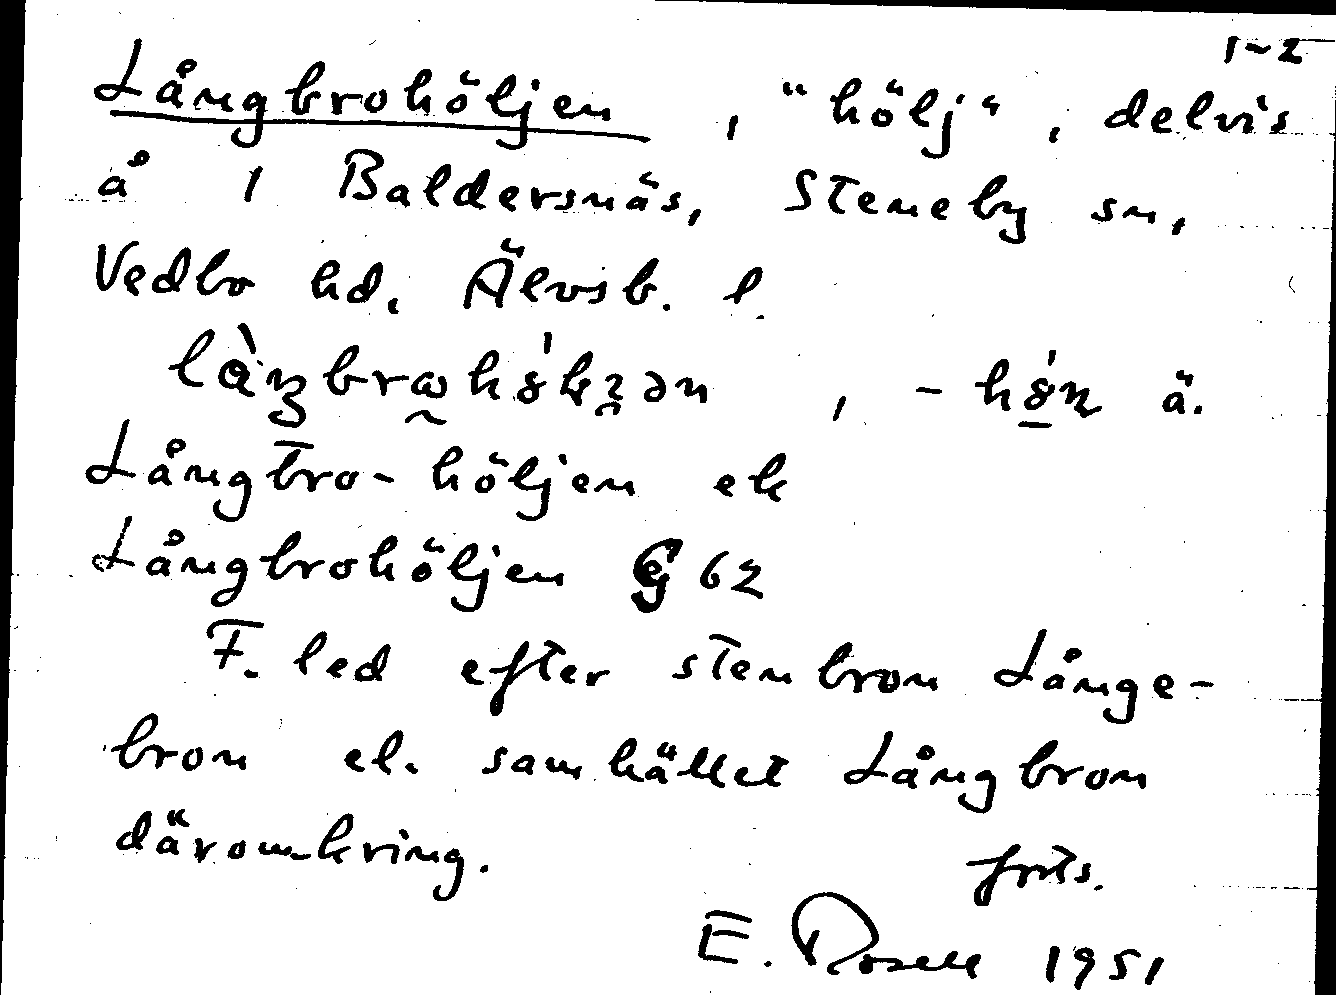 1~2
Långbrohöljen, "hölj", delvis
å 1 Baldersnäs, Steneby sn,
Vedbo hd. Älvsb. l.
, - ä.
Långbro-höljen ek
Långbrohöljen G 62
F. led efter stenbron Långe-
bron el. samhället Långbron
däromkring. frts.
E. Rosell 1951